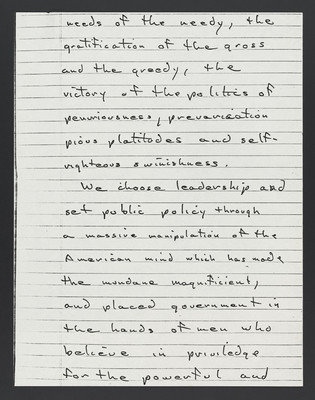 needs of the needy, the
gratification of the gross
and the greedy, the
victory of the politics of
penuriousness, prevarication
pious platitudes and self-
righteous swinishness.
We choose leadership and
set public policy through
a massive manipulation of the
American mind which has made
the mundane magnificient,
and placed government in
the hands of men who
believe in priviledge
for the powerful and